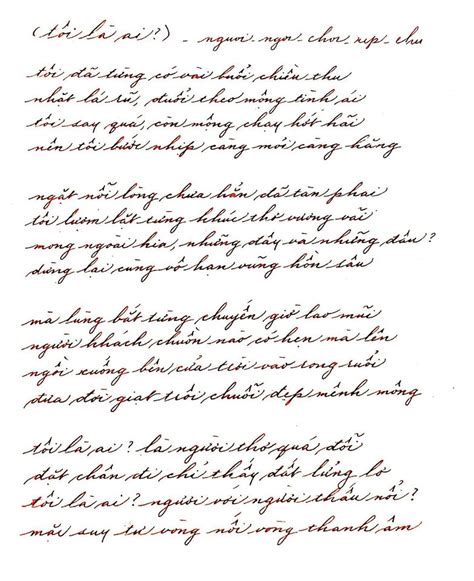 (tôi là ai?) - người - ngợi - chơi - xếp - chữ
tôi đã từng có vài buổi chiều thu
nhặt lá rũ, đuổi theo mộng tình ái
tôi say quá, còn mộng chạy hớt hãi
nên tôi bước nhịp càng mỏi càng hăng
ngặt nỗi lòng chưa hẳn đã tàn phai
tôi lượm lặt từng khúc thơ vương vãi
mong ngoài kia, những đây và những đâu?
dừng lại cùng vô hạn vũng hồn sâu
mà lùng bắt từng chuyến gió lao mãi
người khách chuồn nào có hẹn mà lên
ngồi xuống bên cửa trời vào rong ruổi
đưa đời giạt trôi chuỗi đẹp mênh mông
tôi là ai? là người thơ quá đỗi
đặt chân đi chỉ thấy đất lửng lơ
tôi là ai? người với người thấu nổi?
mãi suy tư vòng nối vòng thanh âm